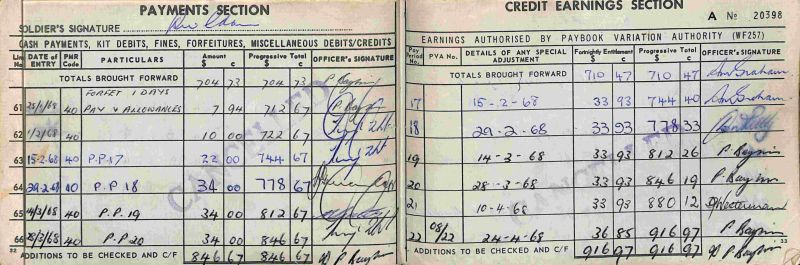 PAYMENTS SECTION
SOLDIER'S SIGNATURE
CASH PAYMENTS, KIT DEBITS, FINES, FORFEITURES, MISCELLANEOUS DEBITS/CREDITS
Line No DATE of ENTRY PMR Code PARTICULARS Amount $ c Progressive Total $ c OFFICER'S SIGNATURE
TOTALS BROUGHT FORWARD 704 73 704 73
FORFET 1 DAYS
61 40 PAY & ALLOWANCES 7 94 712 67
62 1/2/68 40 10 00 722 67
63 15-2-68 40 P.P.17 22 00 744 67
64 29-2-68 40 P.P.18 34 00 778 67
65 14/3/68 40 P.P.19 34 00 812 67
66 28/3/68 40 P.P.20 34 00 846 67
32 ADDITIONS TO BE CHECKED AND C/F 846 67 846 67
CANCELLED
CREDIT EARNINGS SECTION
A No 20398
EARNINGS AUTHORISED BY PAYBOOK VARIATION AUTHORITY (WF257)
Pay Period No. PVA No. DETAILS OF ANY SPECIAL ADJUSTMENT Fortnightly Entitlement $ c Progressive Total $ c OFFICER'S SIGNATURE
TOTALS BROUGHT FORWARD 710 47 710 47
17 15-2-68 33 93 744 40
18 29-2-68 33 93 778 33
19 14-3-68 33 93 812 26
20 28-3-68 33 93 846 19
21 10-4-68 33 93 880 12
22 08/22 24-4-68 36 85 916 97
ADDITIONS TO BE CHECKED AND C/F 916 97 916 97
33
CANCELLED